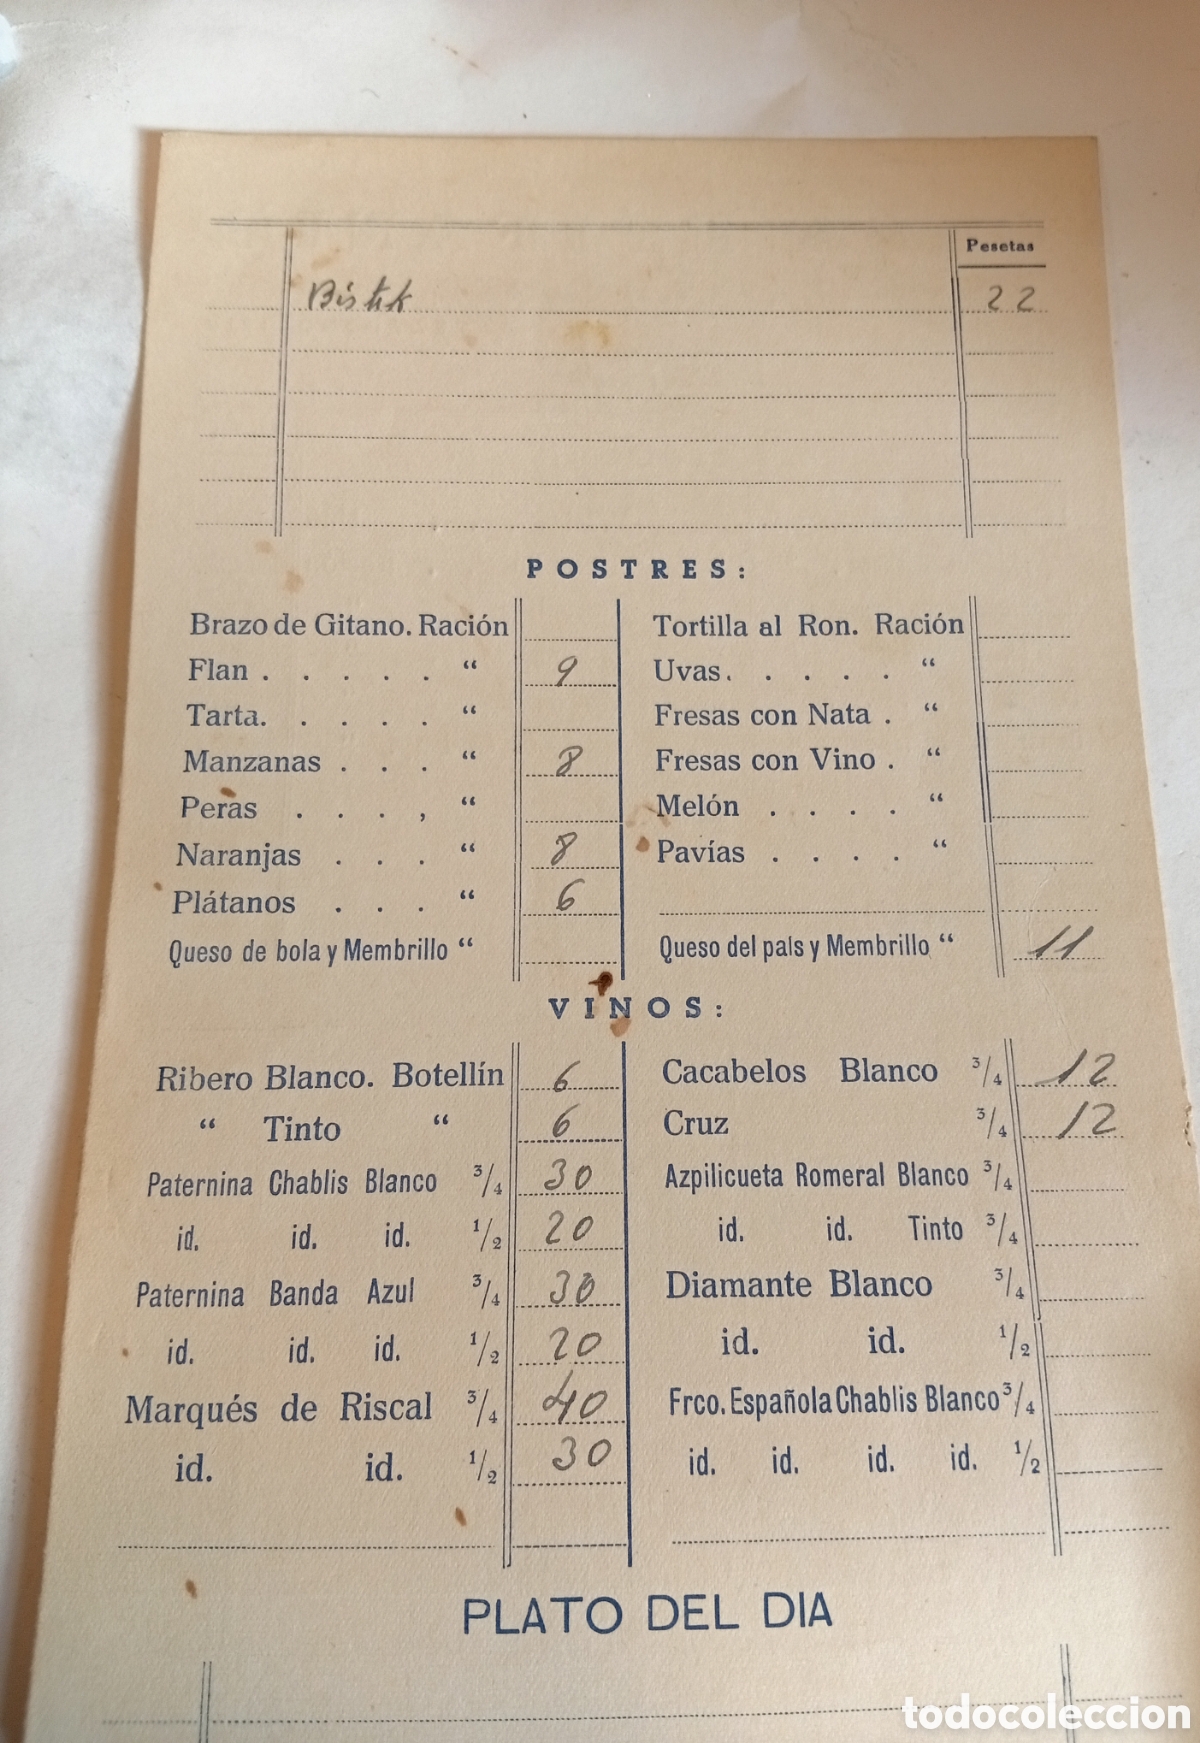 Pesetas
Bistek 22
POSTRES:
Brazo de Gitano. Ración
Flan . . . . . “ 9
Tarta. . . . . “
Manzanas . . . “ 8
Peras . . . , “
Naranjas . . . “ 8
Plátanos . . . “ 6
Queso de bola y Membrillo “
Tortilla al Ron. Ración
Uvas. . . . . “
Fresas con Nata . “
Fresas con Vino . “
Melón . . . . “
Pavías . . . . “
Queso del país y Membrillo “ 11
VINOS:
Ribero Blanco. Botellín 6
“ Tinto “ 6
Paternina Chablis Blanco 3/4 30
id. id. id. 1/2 20
Paternina Banda Azul 3/4 30
id. id. id. 1/2 20
Marqués de Riscal 3/4 40
id. id. 1/2 30
Cacabelos Blanco 3/4 12
Cruz 3/4 12
Azpilicueta Romeral Blanco 3/4
id. id. Tinto 3/4
Diamante Blanco 3/4
id. id. 1/2
Frco. Española Chablis Blanco 3/4
id. id. id. id. 1/2
PLATO DEL DIA
todocoleccion